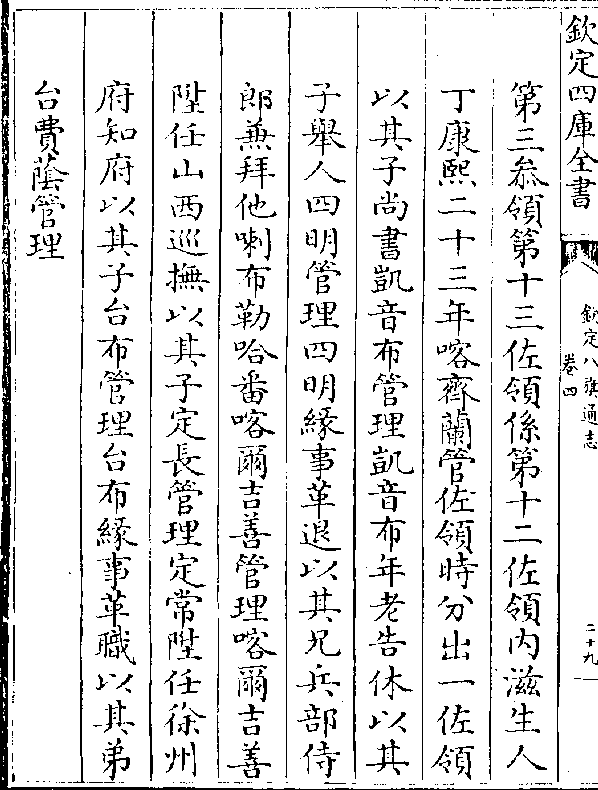 欽定四庫全書
欽定八旗通志
卷四
二十九
第三叅領第十三佐領係第十二佐領内滋生人
丁康熙二十三年喀齊蘭管佐領時分出一佐領
以其子尚書凱音布管理凱音布年老告休以其
子舉人四明管理四明緣事革退以其兄兵部侍
郎兼拜他喇布勒哈番喀爾吉善管理喀爾吉善
陞任山西巡撫以其子定長管理定常陞任徐州
府知府以其子台布管理台布緣事革職以其弟
台費蔭管理